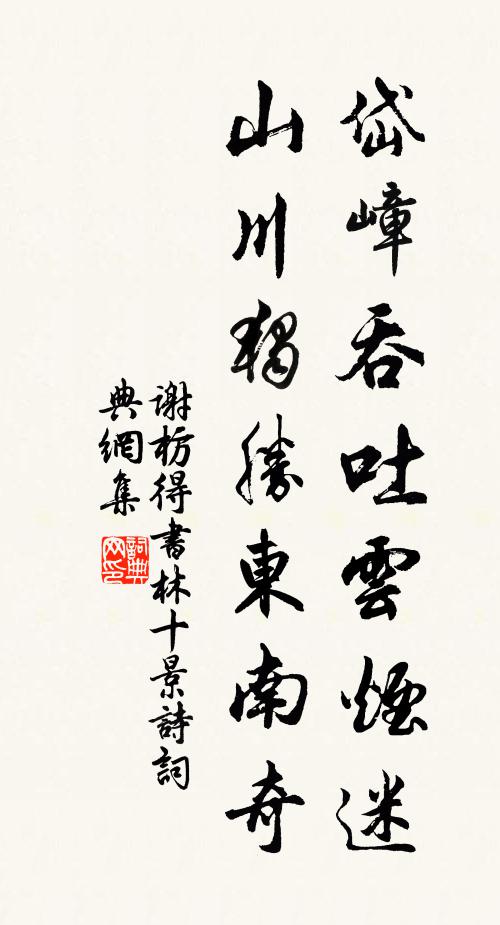 岱嶂吞吐雲煙迷
山川獨勝東南奇
謝枋得書林十景詩詞
典網集
詞典網印